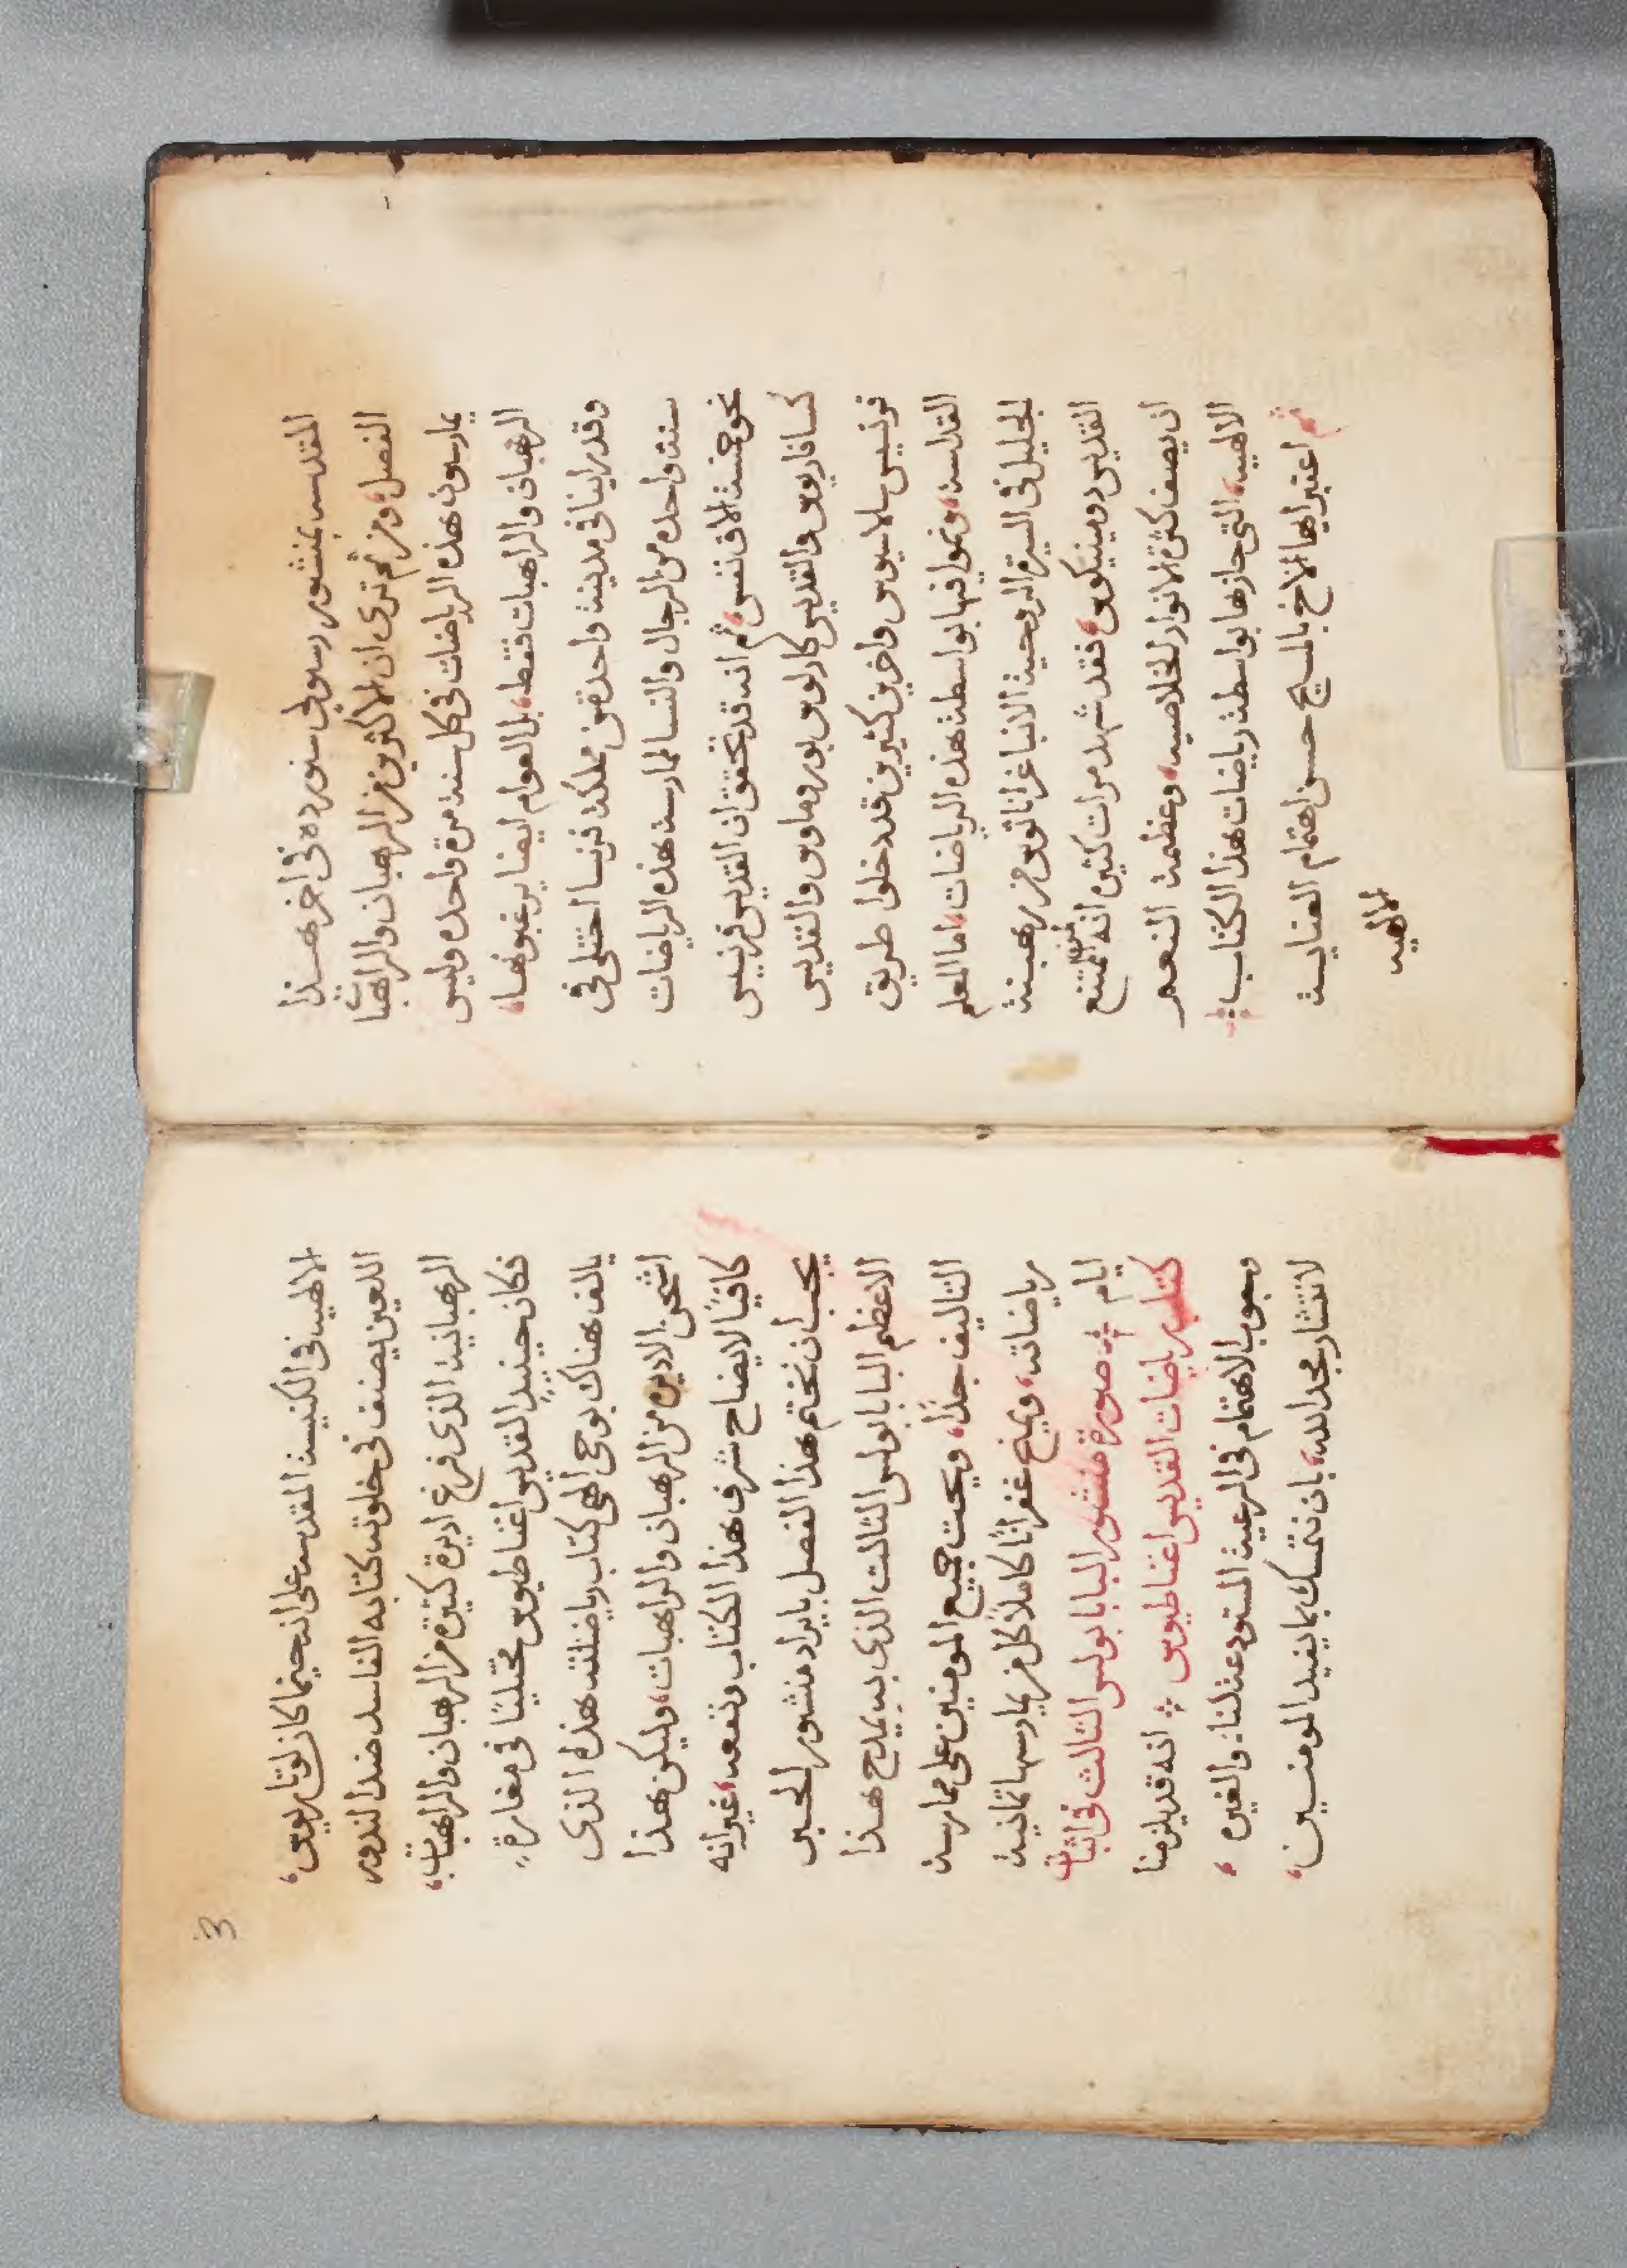 المقدسه بمنشور رسولي سنورده في اخر هذا
الفصل، ومن ثم ترى ان الاكثرين من الرهبان والراهبات
يمارسون هذه الرياضات في كل سنه مرة واحده وليس
الرهبان والراهبات فقط، بل العوام ايضا يرغبونها،
وقد راينا في مدينة واحده من مملكة فرنسا اختلى في
سنة واحده من الرجال والنسا لممارسة هذه الرياضات
نحو خمسة الاف نفس، ثم انه قد تحقق ان القديس فرنسيس
كسافاريوس والقديس كارلوس بوروماوس والقديس
فرنسيس سلاسيوس واخرين كثيرين قد دخلوا طريق
القداسه، ونموا فيها بواسطة هذه الرياضات، اما المعلم
الجليل في السيرة الروحية الانبا غراناثوس من رهبنة
القديس دومينيكوس، فقد شهد مرات كثيره انه من الممتنع
ان يصف كثرة الانوار الخلاصيه، وعظمة النعم
الالهيه، التي حازها بواسطة رياضات هذا الكتاب
ثم اعتبر ايها الاخ بالمسيح حسن اهتمام العناية
الالهيه
3
الالهيه في الكنيسة المقدسه على انه حينما كان لوتاريوس،
اللعين يصنف في خلوته كتابه الفاسد ضد النذور
الرهبانية الذي فرغ اديرة كثيرة من الرهبان والراهبات،
فكان حينيذٍ القديس اغناطيوس مختليًا في مغارة،
يالف هناك بوحي الهي كتاب رياضاته هذه الذي
اشحن الاديره من الرهبان والراهبات، وليكن هذا
كافيًا لايضاح شرف هذا الكتاب ونفعه، غير انه
يجب ان نختم هذا الفصل بايراد منشور الحبر
الاعظم البابا بولس الثالث الذي به يمدح هذا
التاليف جدًا، ويحث جميع المومنين على ممارسة
رياضاته، ويمنح غفرانًا كاملًا كل من يمارسها ثمانية
ايام ۞ صورة منشور البابا بولس الثالث في اثبات
كتاب رياضات القديس اغناطيوس ۞ انه قد يلزمنا
وجوب الاهتمام في الرعية المستودعة لنا، والغيره،
لانتشار مجد الله، بان نتمسك بما يفيد المومنين،